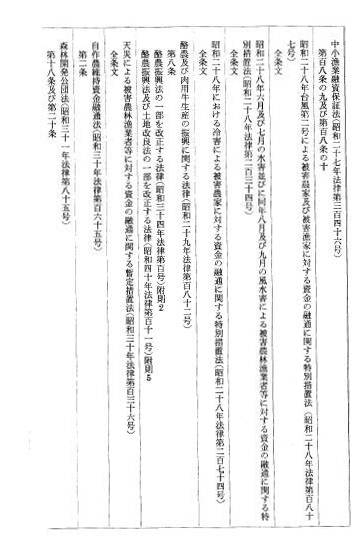 中小漁業融資保証法(昭和二十七年法律第三百四十六号)
第百八条の九及び第百八条の十
昭和二十八年台風第二号による被害農家及び被害漁家に対する資金の融通に関する特別措置法(昭和二十八年法律第百八十
七号)
全条文
昭和二十八年六月及び七月の水害並びに同年八月及び九月の風水害による被害農林漁業者等に対する資金の融通に関する特
別措置法(昭和二十八年法律第二百三十四号)
全条文
昭和二十八年における冷害による被害農家に対する資金の融通に関する特別措置法(昭和二十八年法律第二百七十四号)
全条文
酪農及び肉用牛生産の振興に関する法律(昭和二十九年法律第百八十二号)
第八条
酪農振興法の一部を改正する法律(昭和三十四年法律第百号)附則2
酪農振興法及び土地改良法の一部を改正する法律(昭和四十年法律第百十一号)附則5
天災による被害農林漁業者等に対する資金の融通に関する暫定措置法(昭和三十年法律第百三十六号)
全条文
自作農維持資金融通法(昭和三十年法律第百六十五号)
第二条
森林開発公団法(昭和三十一年法律第八十五号)
第十八条及び第二十条